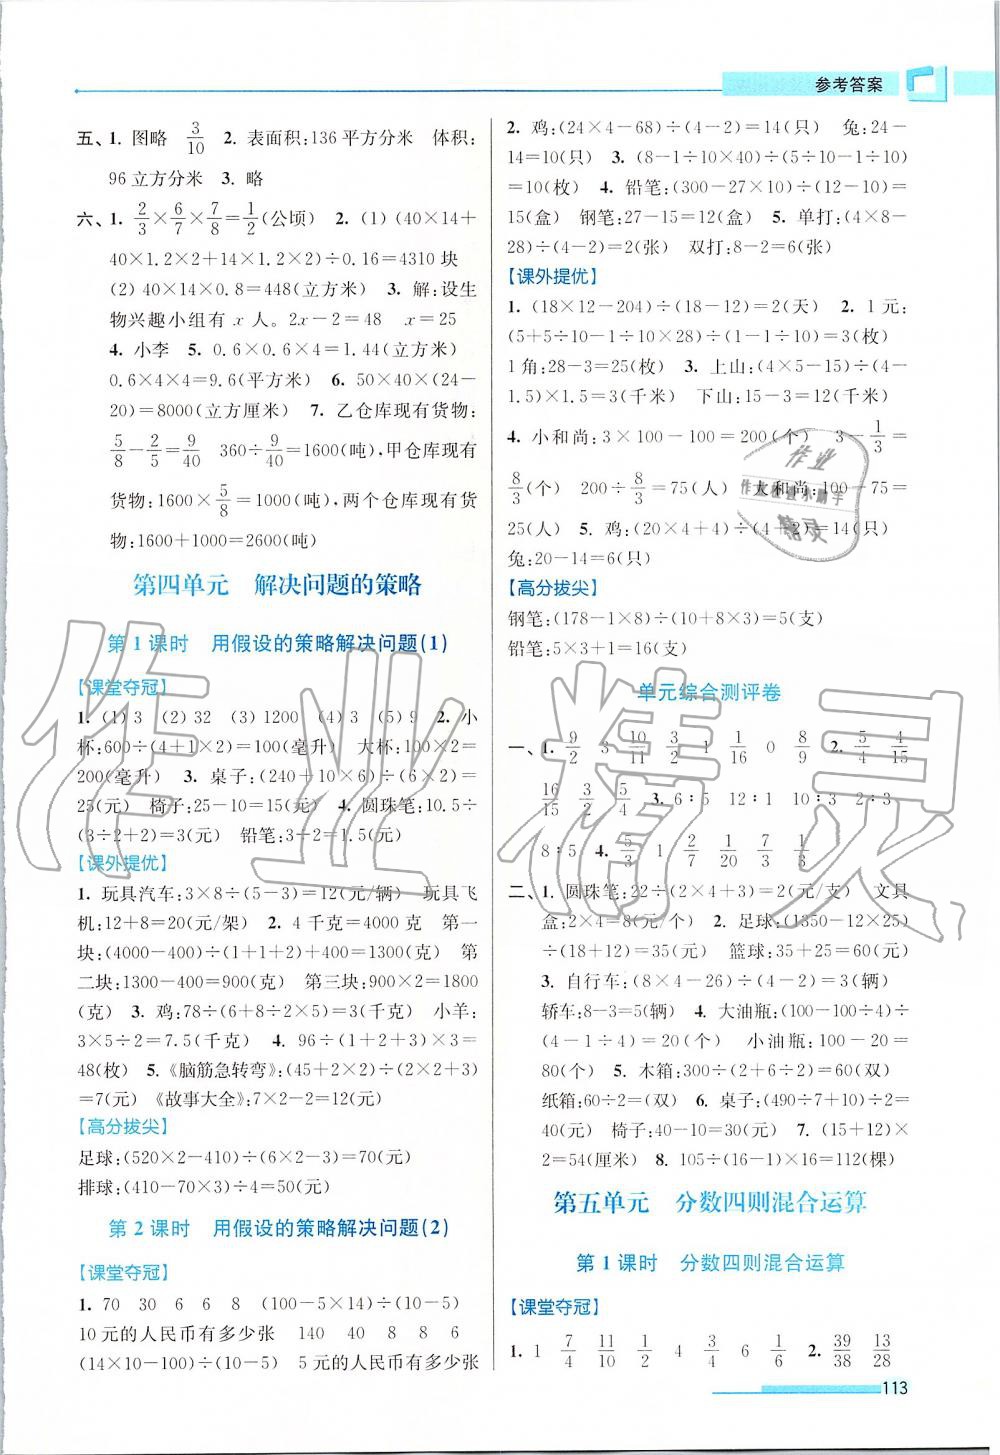 参考答案
五、1. 图略 3/10 2. 表面积:136平方分米 体积:
96立方分米 3. 略
六、1. 2/3×6/7×7/8=1/2(公顷) 2. (1)(40×14+
40×1.2×2+14×1.2×2)÷0.16=4310块
(2)40×14×0.8=448(立方米) 3. 解:设生
物兴趣小组有x人。2x-2=48 x=25
4. 小李 5. 0.6×0.6×4=1.44(立方米)
0.6×4×4=9.6(平方米) 6. 50×40×(24-
20)=8000(立方厘米) 7. 乙仓库现有货物:
5/8-2/5=9/40 360÷9/40=1600(吨),甲仓库现有
货物:1600×5/8=1000(吨),两个仓库现有货
物:1600+1000=2600(吨)
第四单元 解决问题的策略
第1课时 用假设的策略解决问题(1)
【课堂夺冠】
1. (1)3 (2)32 (3)1200 (4)3 (5)9 2. 小
杯:600÷(4+1×2)=100(毫升) 大杯:100×2=
200(毫升) 3. 桌子:(240+10×6)÷(6×2)=
25(元) 椅子:25-10=15(元) 4. 圆珠笔:10.5÷
(3÷2+2)=3(元) 铅笔:3÷2=1.5(元)
【课外提优】
1. 玩具汽车:3×8÷(5-3)=12(元/辆) 玩具飞
机:12+8=20(元/架) 2. 4千克=4000克 第一
块:(4000-400)÷(1+1+2)+400=1300(克) 第
二块:1300-400=900(克) 第三块:900×2=1800
(克) 3. 鸡:78÷(6+8÷2×5)=3(千克) 小羊:
3×5÷2=7.5(千克) 4. 96÷(1+2+3)×3=
48(枚) 5.《脑筋急转弯》:(45+2×2)÷(2×2+3)
=7(元)《故事大全》:7×2-2=12(元)
【高分拔尖】
足球:(520×2-410)÷(6×2-3)=70(元)
排球:(410-70×3)÷4=50(元)
第2课时 用假设的策略解决问题(2)
【课堂夺冠】
1. 70 30 6 6 8 (100-5×14)÷(10-5)
10元的人民币有多少张 140 40 8 8 6
(14×10-100)÷(10-5) 5元的人民币有多少张
2. 鸡:(24×4-68)÷(4-2)=14(只) 兔:24-
14=10(只) 3. (8-1÷10×40)÷(5÷10-1÷10)
=10(枚) 4. 铅笔:(300-27×10)÷(12-10)=
15(盒) 钢笔:27-15=12(盒) 5. 单打:(4×8-
28)÷(4-2)=2(张) 双打:8-2=6(张)
【课外提优】
1. (18×12-204)÷(18-12)=2(天) 2. 1元:
(5+5÷10-1÷10×28)÷(1-1÷10)=3(枚)
1角:28-3=25(枚) 3. 上山:(4×5-15)÷(4-
1.5)×1.5=3(千米) 下山:15-3=12(千米)
4. 小和尚:3×100-100=200(个) 3-1/3=
8/3(个) 200÷8/3=75(人) 大和尚:100-75=
25(人) 5. 鸡:(20×4+4)÷(4+2)=14(只)
兔:20-14=6(只)
【高分拔尖】
钢笔:(178-1×8)÷(10+8×3)=5(支)
铅笔:5×3+1=16(支)
单元综合测评卷
一、1. 9/2 3 10/11 3/2 1 1/16 0 8/9 2. 5/4 4/15
16/15 3/2 5/4 3. 6∶5 12∶1 10∶3 2∶3
8∶5 4. 5/3 1 2/7 1/20 7/3 1/3
二、1. 圆珠笔:22÷(2×4+3)=2(元/支) 文具
盒:2×4=8(元/个) 2. 足球:(1350-12×25)
÷(18+12)=35(元) 篮球:35+25=60(元)
3. 自行车:(8×4-26)÷(4-2)=3(辆)
轿车:8-3=5(辆) 4. 大油瓶:(100-100÷4)
÷(4-1÷4)=20(个) 小油瓶:100-20=
80(个) 5. 木箱:300÷(2+6÷2)=60(双)
纸箱:60÷2=(双) 6. 桌子:(490÷7+10)÷2=
40(元) 椅子:40-10=30(元) 7. (15+12)×
2=54(厘米) 8. 105÷(16-1)×16=112(棵)
第五单元 分数四则混合运算
第1课时 分数四则混合运算
【课堂夺冠】
1. 1 7/4 11/10 1/2 4 3/4 6 1/6 2. 39/38 13/28
113
作业精灵